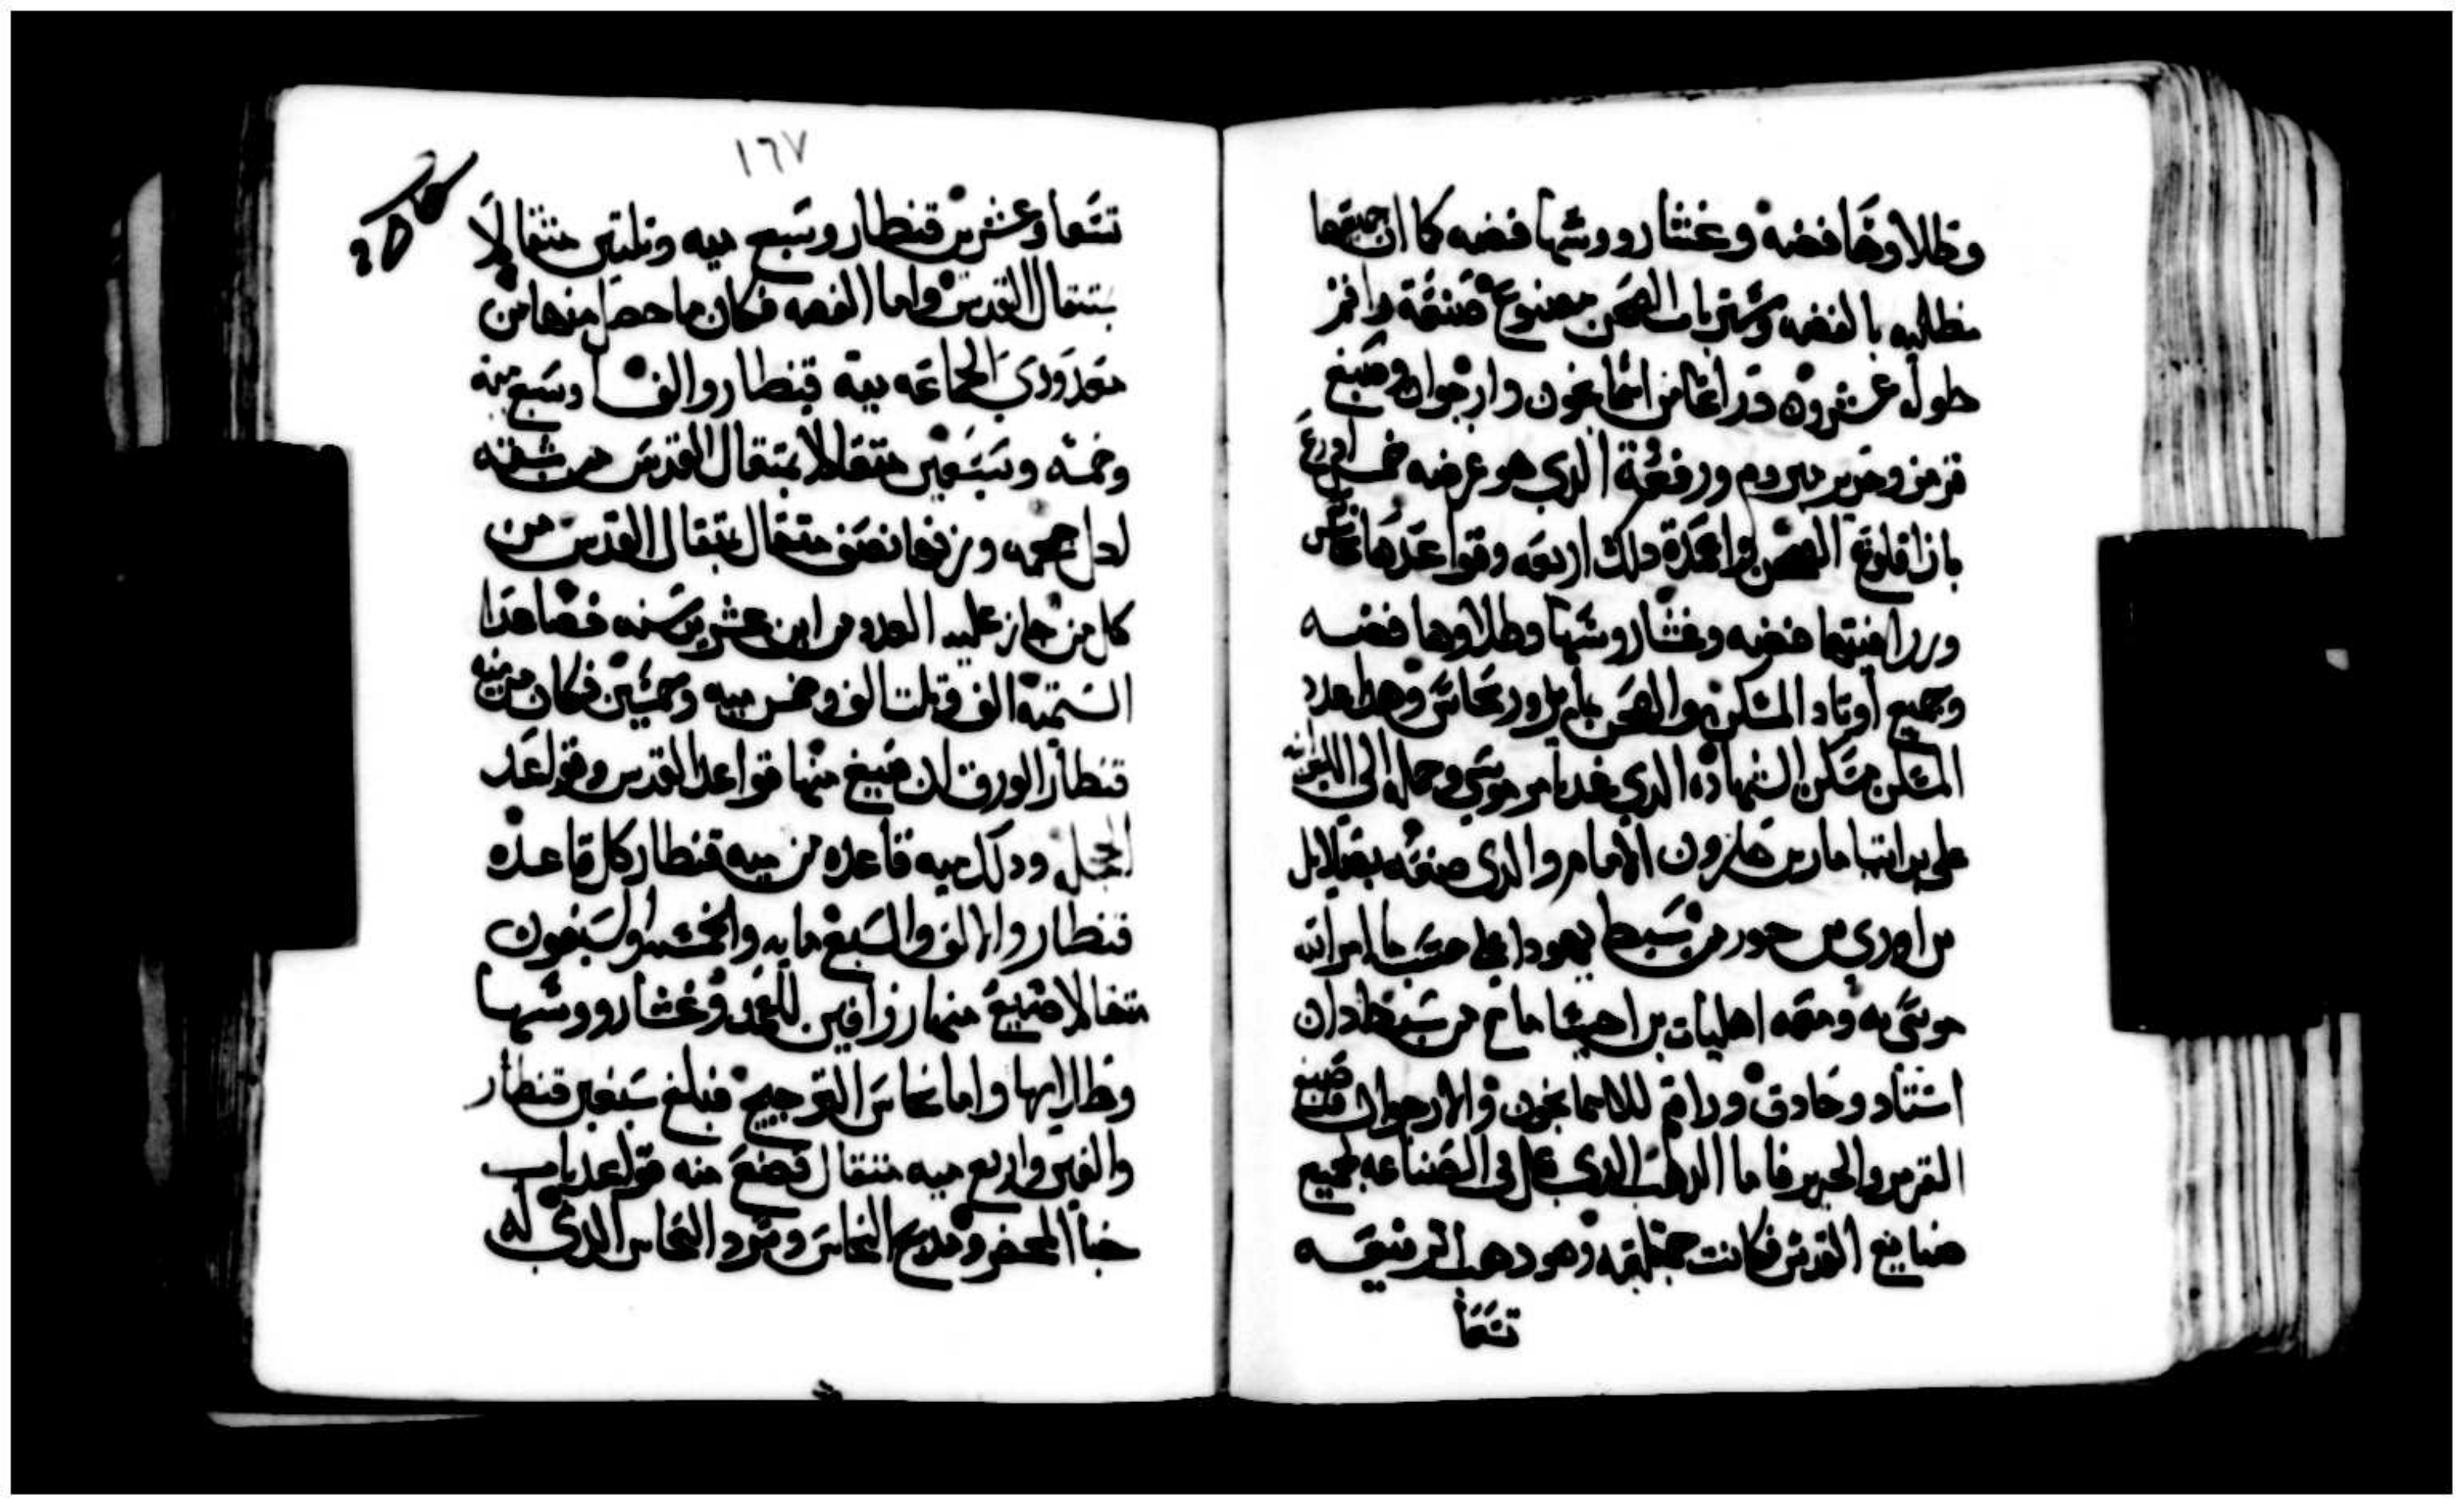 وطلاوها فضه وغشا رووسها فضه كما ان جميعها
مطليه بالفضه وستر باب الصحن مصنوع صنعة رافنر
طوله عشرون دراعا من اسمانجون وارجوان وصبغ
قرمز وحرير مبروم ورفعة الدي هو عرضه خمس ادرع
بازا قلوع الصحن واعمدة دلك اربعه وقواعدها نحاس
وررافينها فضه وغشا روسها وطلاوها فضه
وجميع أوتاد المسكن والصحن بأم يدور نحاس وهدا عدد
المسكن مسكن الشهادة الدي بعد بامر موسى وحمله الي الليوانيه
على يد ايتامار بن هارون الامام والدي صنعه بصلايل
بن اوري بن حور من سبط يهودا على حسب ما امر الله
موسى به ومعه اهلياب بن احيساماخ من سبط دان
استاد وحادق وراقم للاسمانجون والارجوان وصبغ
القرمز والحرير فاما الدهب الدي عمل في الصناعه لجميع
صنايع القدس فكانت جملته وهو دهب الرفيعه
تسعا
١٦٧
تسعا وعشرين قنطار وسبع ميه وتلتين متقالا
بمتقال القدس واما الفضه فكان ما حصل منها من
معدودي الجماعه مية قنطار والف وسبع ميه
وخمسه وسبعين متقالا بمتقال القدس من شقفه
لكل جمجمه وزنها نصف متقال بمتقال القدس من
كل من جاز عليه العدد من ابن عشرين سنه فصاعدا
الستمية الف وتلت الف وخمس ميه وخمسين فكان من ميه
قنطار الورق ان صيغ منها قواعد القدس وقواعد
الحجله ودلك ميه قاعده من ميه قنطار كل قاعده
قنطار والالف والسبع مايه والخمسه والسبعون
متقالا صيغ منها رزافين للعمد وغشا رووسها
وطلايها واما نحاس الترجيح فبلغ سبعين قنطار
والفين واربع ميه متقال فصنع منه قواعد باب
خبا المحضر ومدبح النحاس وسرد النحاس الدي له